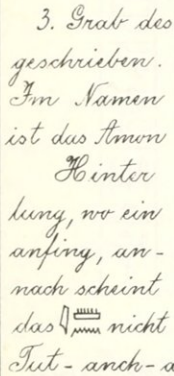 3. Grab des
geschrieben.
Im Namen
ist das Amon
Hinter
lung, wo ein
anfing, an-
nach scheint
das 𓇋𓏠𓈖 nicht
Tut-anch-a